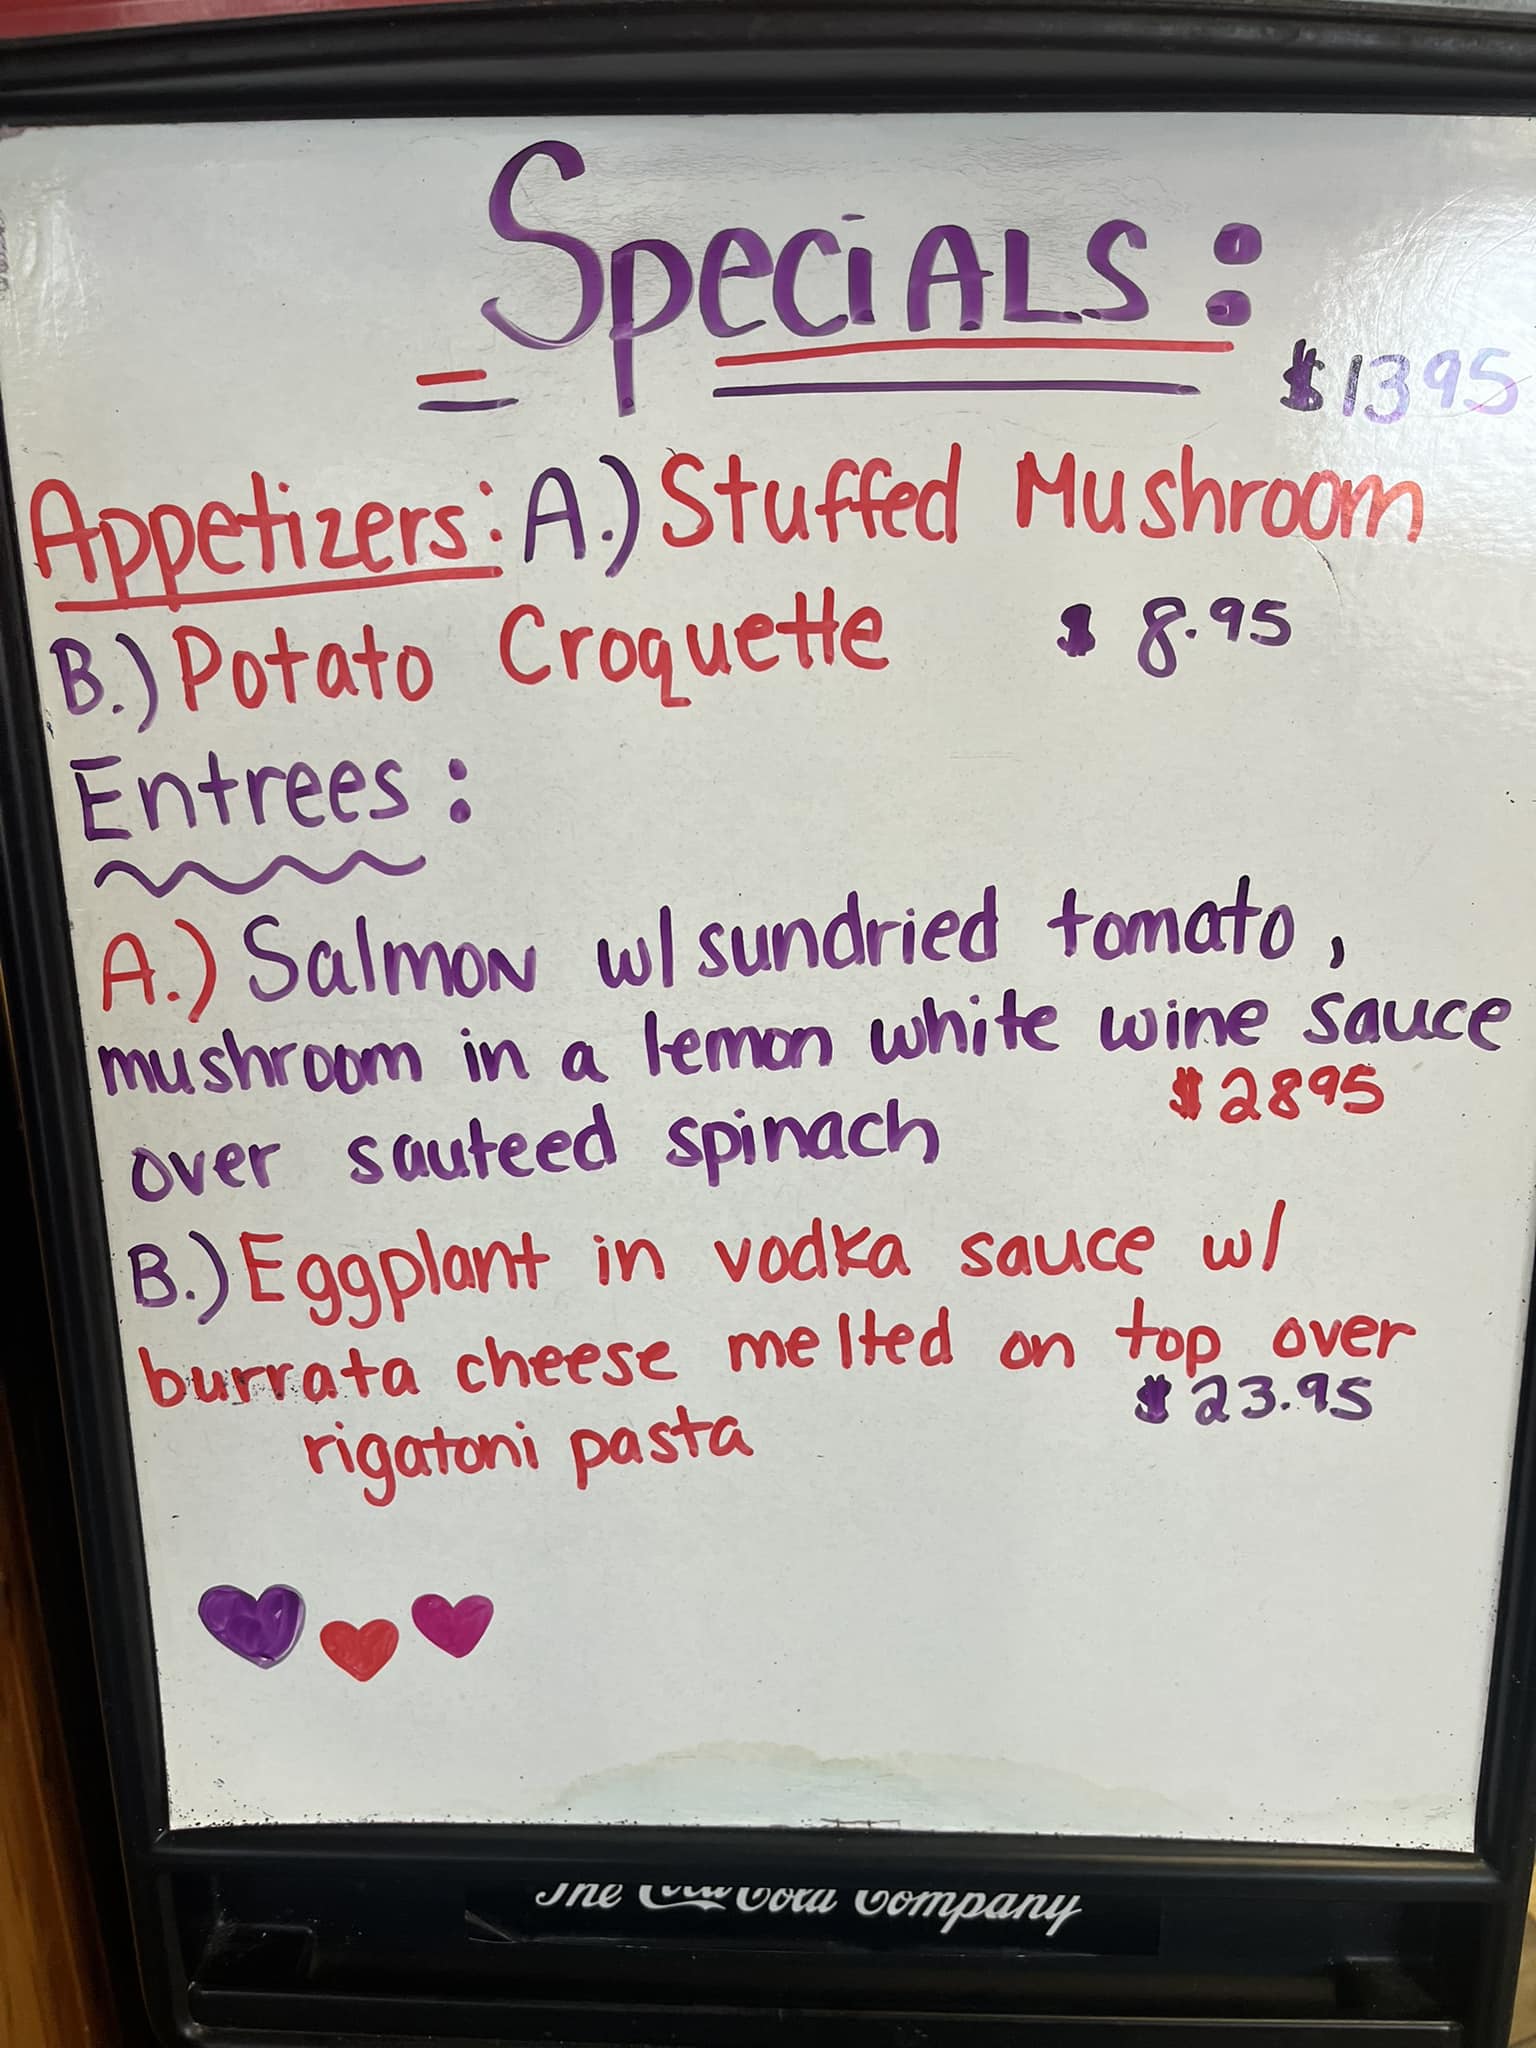 Specials:
$1395
Appetizers: A.) Stuffed Mushroom
B.) Potato Croquette $ 8.95
Entrees:
A.) Salmon w/ sundried tomato,
mushroom in a lemon white wine sauce
$2895
over sauteed spinach
B.) Eggplant in vodka sauce w/
burrata cheese melted on top over
$23.95
rigatoni pasta
The Coca Cola Company